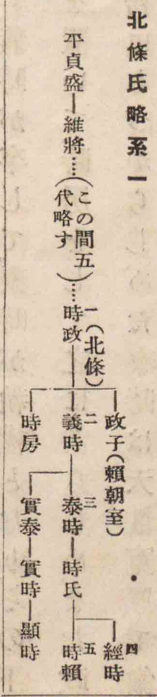 北條氏略系一
平貞盛―維將……(この間五代略す)……時政
一(北條)
政子(賴朝室)
二
義時
時房
三
泰時―時氏
四
經時
五
時賴
實泰―實時―顯時